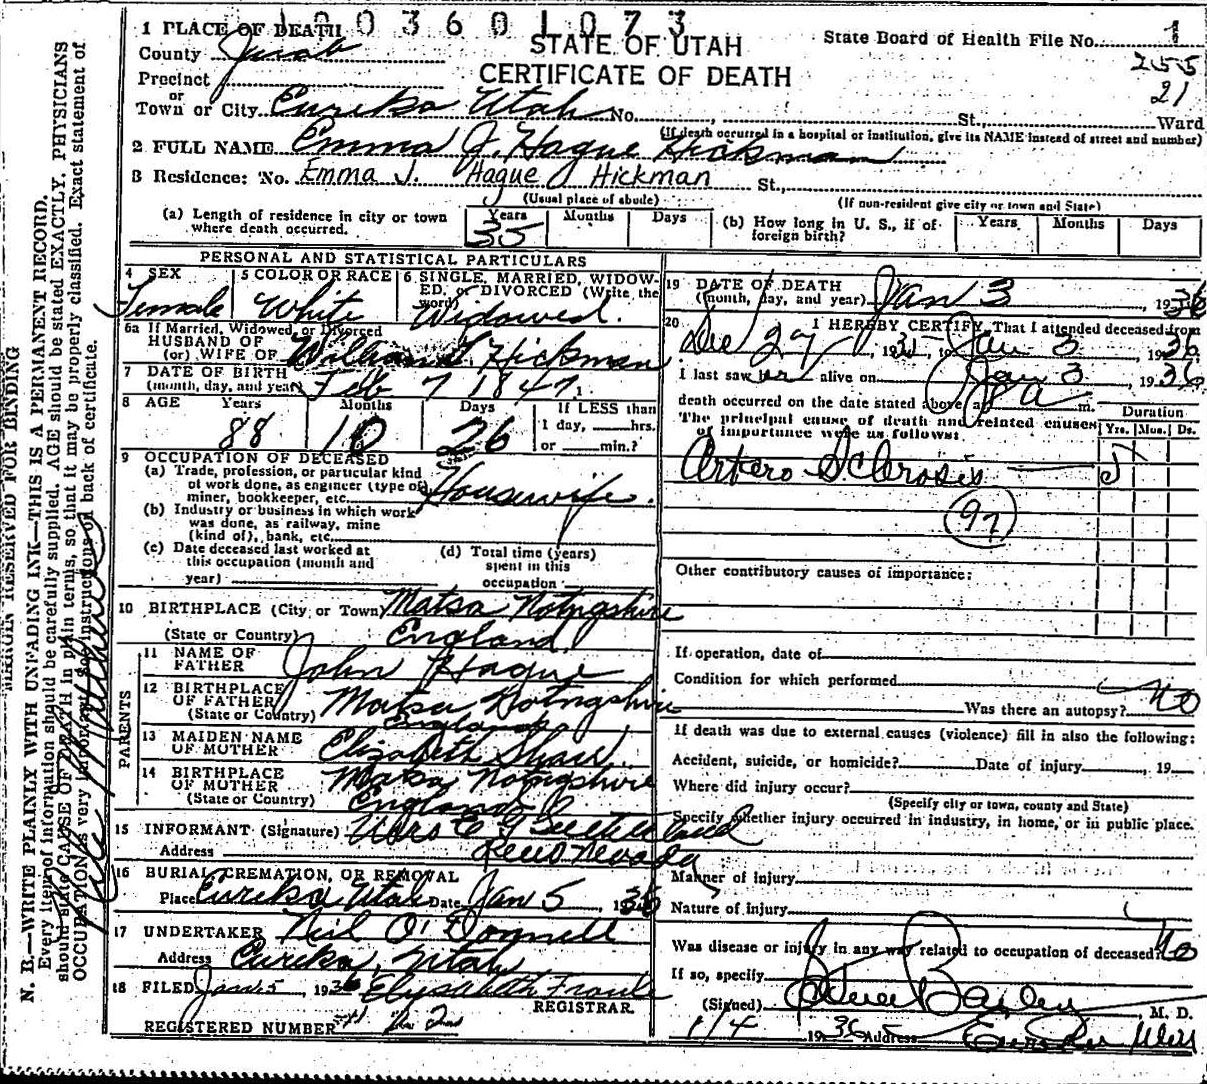 1003601073
1 PLACE OF DEATH
STATE OF UTAH
CERTIFICATE OF DEATH
State Board of Health File No. 1
255
21
County Juab
Precinct
or
Town or City Eureka Utah No. , St., Ward
(If death occurred in a hospital or institution, give its NAME instead of street and number)
2 FULL NAME Emma J. Hague Hickman
3 Residence: No. Emma J. Hague Hickman St.,
(Usual place of abode)
(If non-resident give city or town and State)
(a) Length of residence in city or town where death occurred. Years 35 Months Days
(b) How long in U. S., if of foreign birth? Years Months Days
PERSONAL AND STATISTICAL PARTICULARS
4 SEX Female
5 COLOR OR RACE White
6 SINGLE, MARRIED, WIDOWED, or DIVORCED (Write the word) Widowed.
6a If Married, Widowed, or Divorced
HUSBAND OF
(or) WIFE OF William Hickman
7 DATE OF BIRTH
(month, day, and year) Feb 7 1847
8 AGE Years 88 Months 10 Days 26
If LESS than
1 day, hrs.
or min.?
9 OCCUPATION OF DECEASED
(a) Trade, profession, or particular kind
of work done, as engineer (type of
miner, bookkeeper, etc. Housewife.
(b) Industry or business in which work
was done, as railway, mine
(kind of), bank, etc.
(c) Date deceased last worked at
this occupation (month and
year)
(d) Total time (years)
spent in this
occupation
10 BIRTHPLACE (City or Town) Matsa Notngshire
(State or Country) England
PARENTS
11 NAME OF
FATHER John Hague
12 BIRTHPLACE
OF FATHER Matsa Notngshire
(State or Country) England
13 MAIDEN NAME
OF MOTHER Elizabeth Shaw
14 BIRTHPLACE
OF MOTHER Matsa Notngshire
(State or Country) England
15 INFORMANT (Signature) Mrs
Address Reno Nevada
16 BURIAL, CREMATION, OR REMOVAL
Place Eureka Utah Date Jan 5, 1936
17 UNDERTAKER Neil O'Donnell
Address Eureka, Utah
18 FILED Jan 5, 1936 Elysabeth
REGISTRAR.
REGISTERED NUMBER
19 DATE OF DEATH
(month, day, and year) Jan 3 1936
20 I HEREBY CERTIFY, That I attended deceased from
Dec 27, to Jan 3, 1936
I last saw her alive on Jan 3, 1936
death occurred on the date stated above, at a m.
The principal cause of death and related causes
of importance were as follows:
Duration
Yrs. Mos. Ds.
Artero Sclerosis 5
(97)
Other contributory causes of importance:
If operation, date of
Condition for which performed
Was there an autopsy? no
If death was due to external causes (violence) fill in also the following:
Accident, suicide, or homicide? Date of injury , 19
Where did injury occur?
(Specify city or town, county and State)
Specify whether injury occurred in industry, in home, or in public place.
Manner of injury
Nature of injury
Was disease or injury in any way related to occupation of deceased? No
If so, specify
(Signed) Steele Bailey, M. D.
1/4 1936 Address Eureka Utah
MARGIN RESERVED FOR BINDING
N. B.—WRITE PLAINLY WITH UNFADING INK—THIS IS A PERMANENT RECORD.
Every item of information should be carefully supplied. AGE should be stated EXACTLY. PHYSICIANS
should state CAUSE OF DEATH in plain terms, so that it may be properly classified. Exact statement of
OCCUPATION is very important. See instructions on back of certificate.